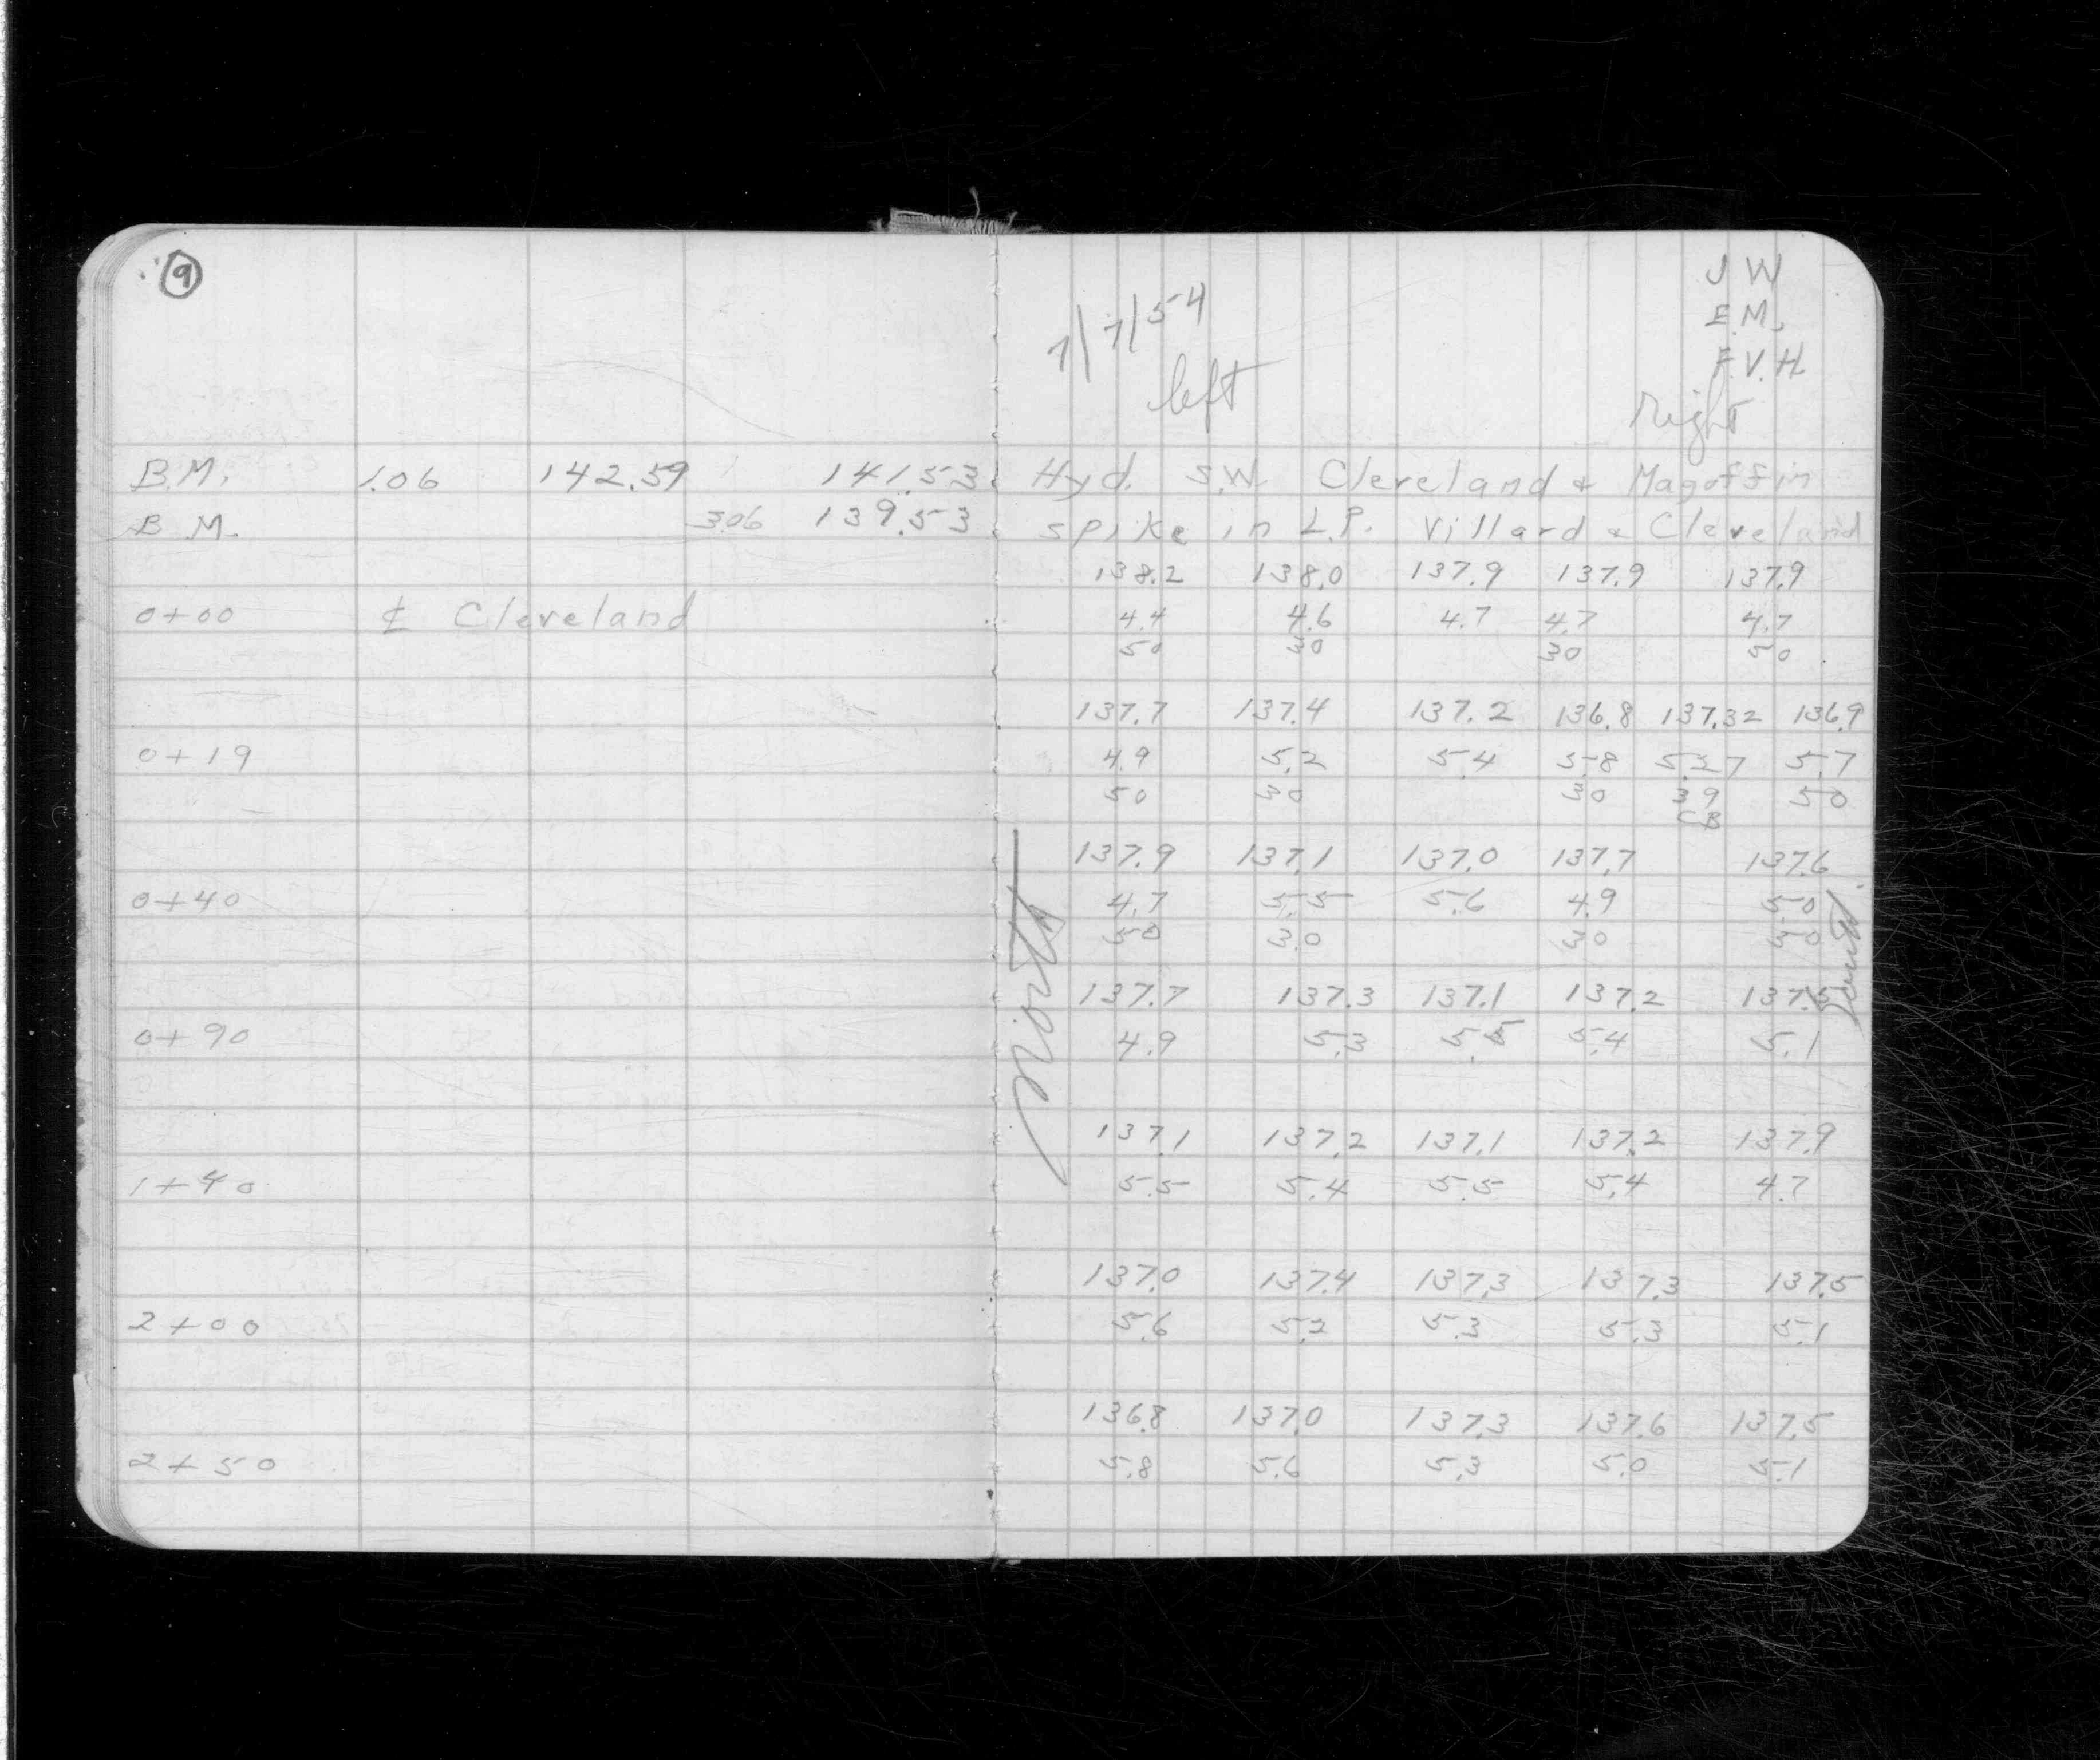 9
7/7/54
J W
E.M.
F.V.H.
left
Right
B.M. 1.06 142.59 141.53 Hyd. S.W. Cleveland & Magoffin
B M. 3.06 139.53 spike in L.P. Villard & Cleveland
138.2 138.0 137.9 137.9 137.9
0+00 ℄ Cleveland 4.4 4.6 4.7 4.7 4.7
50 30 30 50
137.7 137.4 137.2 136.8 137.32 136.9
0+19 4.9 5.2 5.4 5.8 5.27 5.7
50 30 30 39 50
CB
137.9 137.1 137.0 137.7 137.6
0+40 4.7 5.5 5.6 4.9 5.0
50 30 30 50
North
South
137.7 137.3 137.1 137.2 137.5
0+90 4.9 5.3 5.5 5.4 5.1
137.1 137.2 137.1 137.2 137.9
1+40 5.5 5.4 5.5 5.4 4.7
137.0 137.4 137.3 137.3 137.5
2+00 5.6 5.2 5.3 5.3 5.1
136.8 137.0 137.3 137.6 137.5
2+50 5.8 5.6 5.3 5.0 5.1